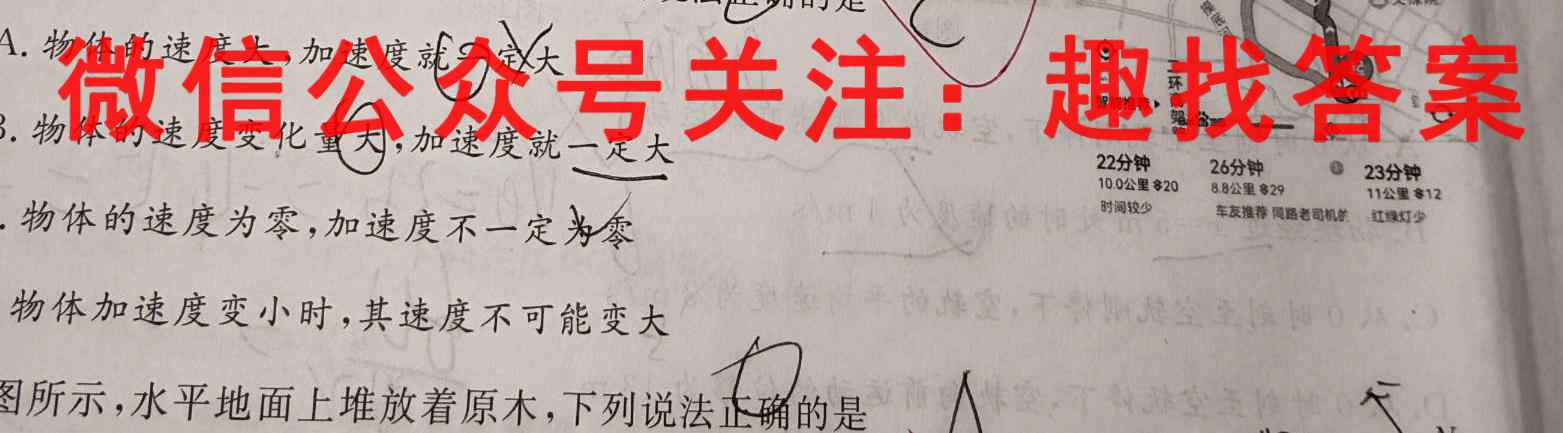 说法正确的是
A. 物体的速度大,加速度就一定大
微信公众号关注：趣找答案
B. 物体的速度变化量大,加速度就一定大
22分钟 26分钟 23分钟
10.0公里 $20 8.8公里 $29 11公里 $12
时间较少 车友推荐 同路老司机的 红绿灯少
. 物体的速度为零,加速度不一定为零
物体加速度变小时,其速度不可能变大
图所示,水平地面上堆放着原木,下列说法正确的是